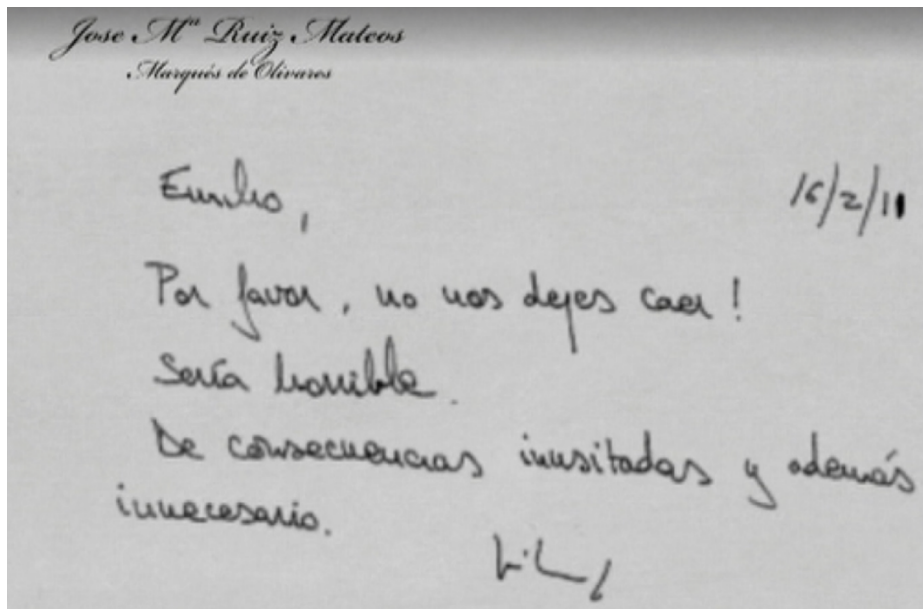 Jose Mª Ruiz Mateos
Marqués de Olivares
Emilio, 16/2/11
Por favor, no nos dejes caer!
Sería horrible.
De consecuencias inusitadas y además
innecesario.